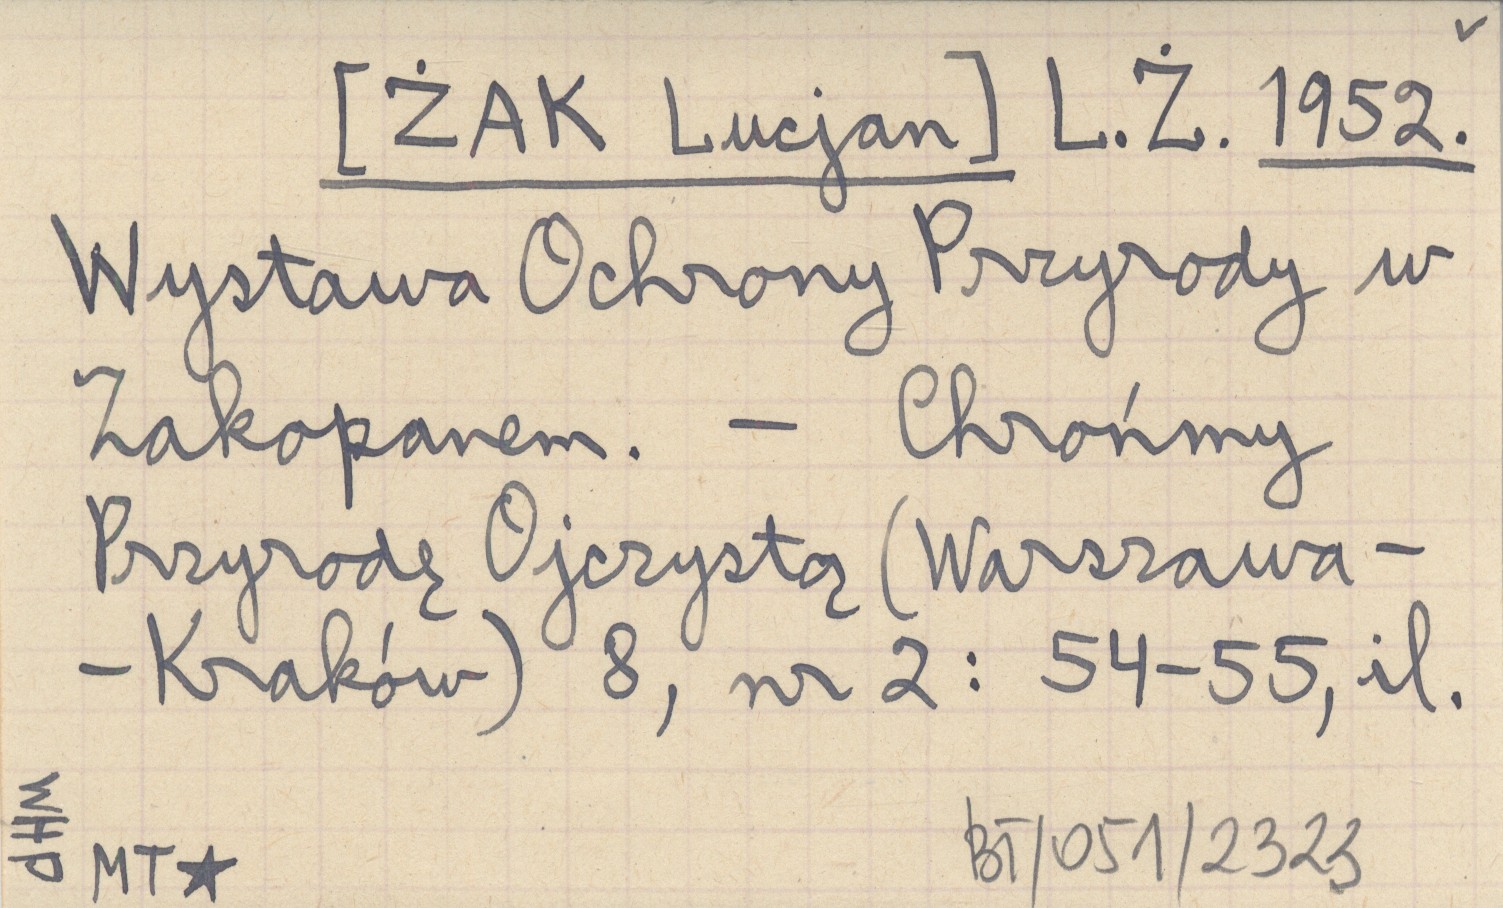 ✓
[ŻAK Lucjan] L.Ż. 1952.
Wystawa Ochrony Przyrody w
Zakopanem. – Chrońmy
Przyrodę Ojczystą (Warszawa–
–Kraków) 8, nr 2 : 54–55, il.
WHP
MT★
BT/051/2323